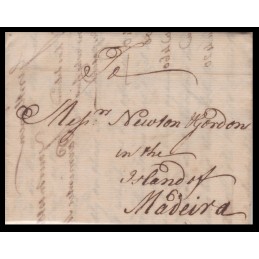 To
Messrs Newton & Gordon
in the
Island of
Madeira